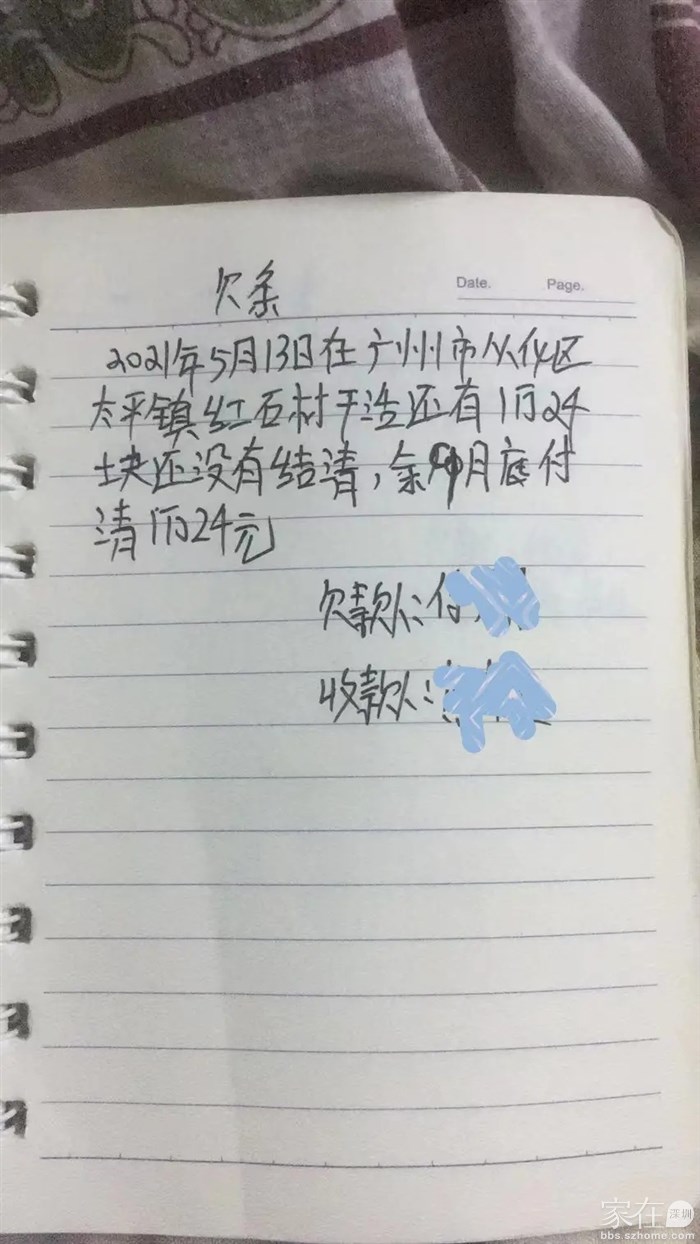 欠条
Date. Page.
2021年5月13日在广州市从化区
太平镇红石材干活还有1万24
块还没有结清,余 月底付
清1万24元
欠款人:付
收款人:
家在深圳
bbs.szhome.com